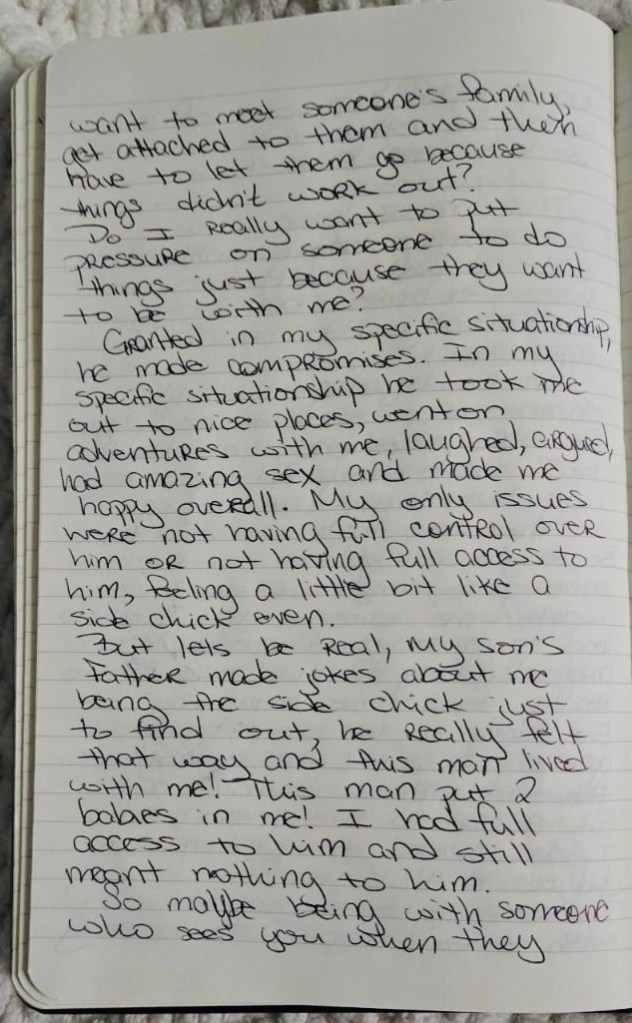 want to meet someone's family,
get attached to them and then
have to let them go because
things didn't work out?
Do I really want to put
pressure on someone to do
things just because they want
to be with me?
Granted in my specific situationship,
he made compromises. In my
specific situationship he took me
out to nice places, went on
adventures with me, laughed, argued,
had amazing sex and made me
happy overall. My only issues
were not having full control over
him or not having full access to
him, feeling a little bit like a
side chick even.
But lets be real, my son's
father made jokes about me
being the side chick just
to find out, he really felt
that way and this man lived
with me! This man put 2
babies in me! I had full
access to him and still
meant nothing to him.
So maybe being with someone
who sees you when they